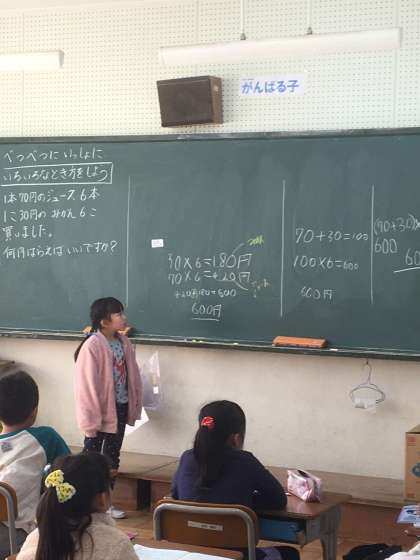 がんばる子
べつべつに いっしょに
いろいろなとき方をしよう
1本70円のジュース 6本
1こ30円の みかん 6こ
買いました。
何円はらえば いいですか?
30×6=180円
70×6=420円
420+180=600
600円
70+30=100
100×6=600
600円
(70+30)×
600